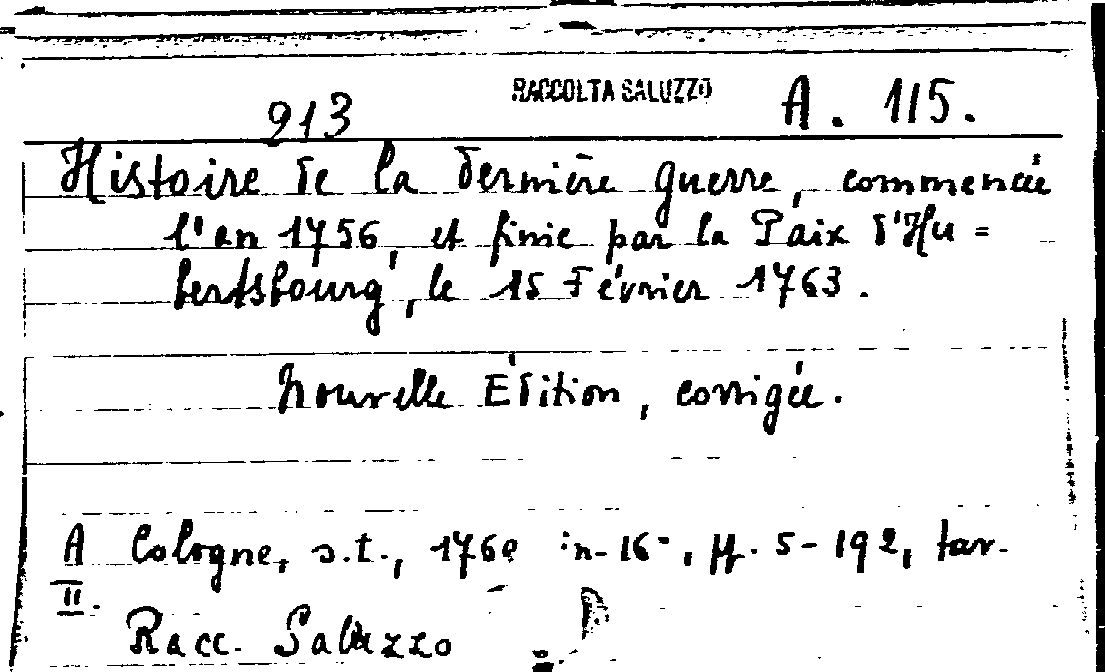 RACCOLTA SALUZZO
913 A. 115.
Histoire de la dernière guerre, commencée
l'an 1756, et finie par la Paix d'Hu=
bertsbourg, le 15 Février 1763.
Nouvelle Édition, corrigée.
A Cologne, s.t., in-16°, pp. 5-192, tav.
II.
Racc. Saluzzo